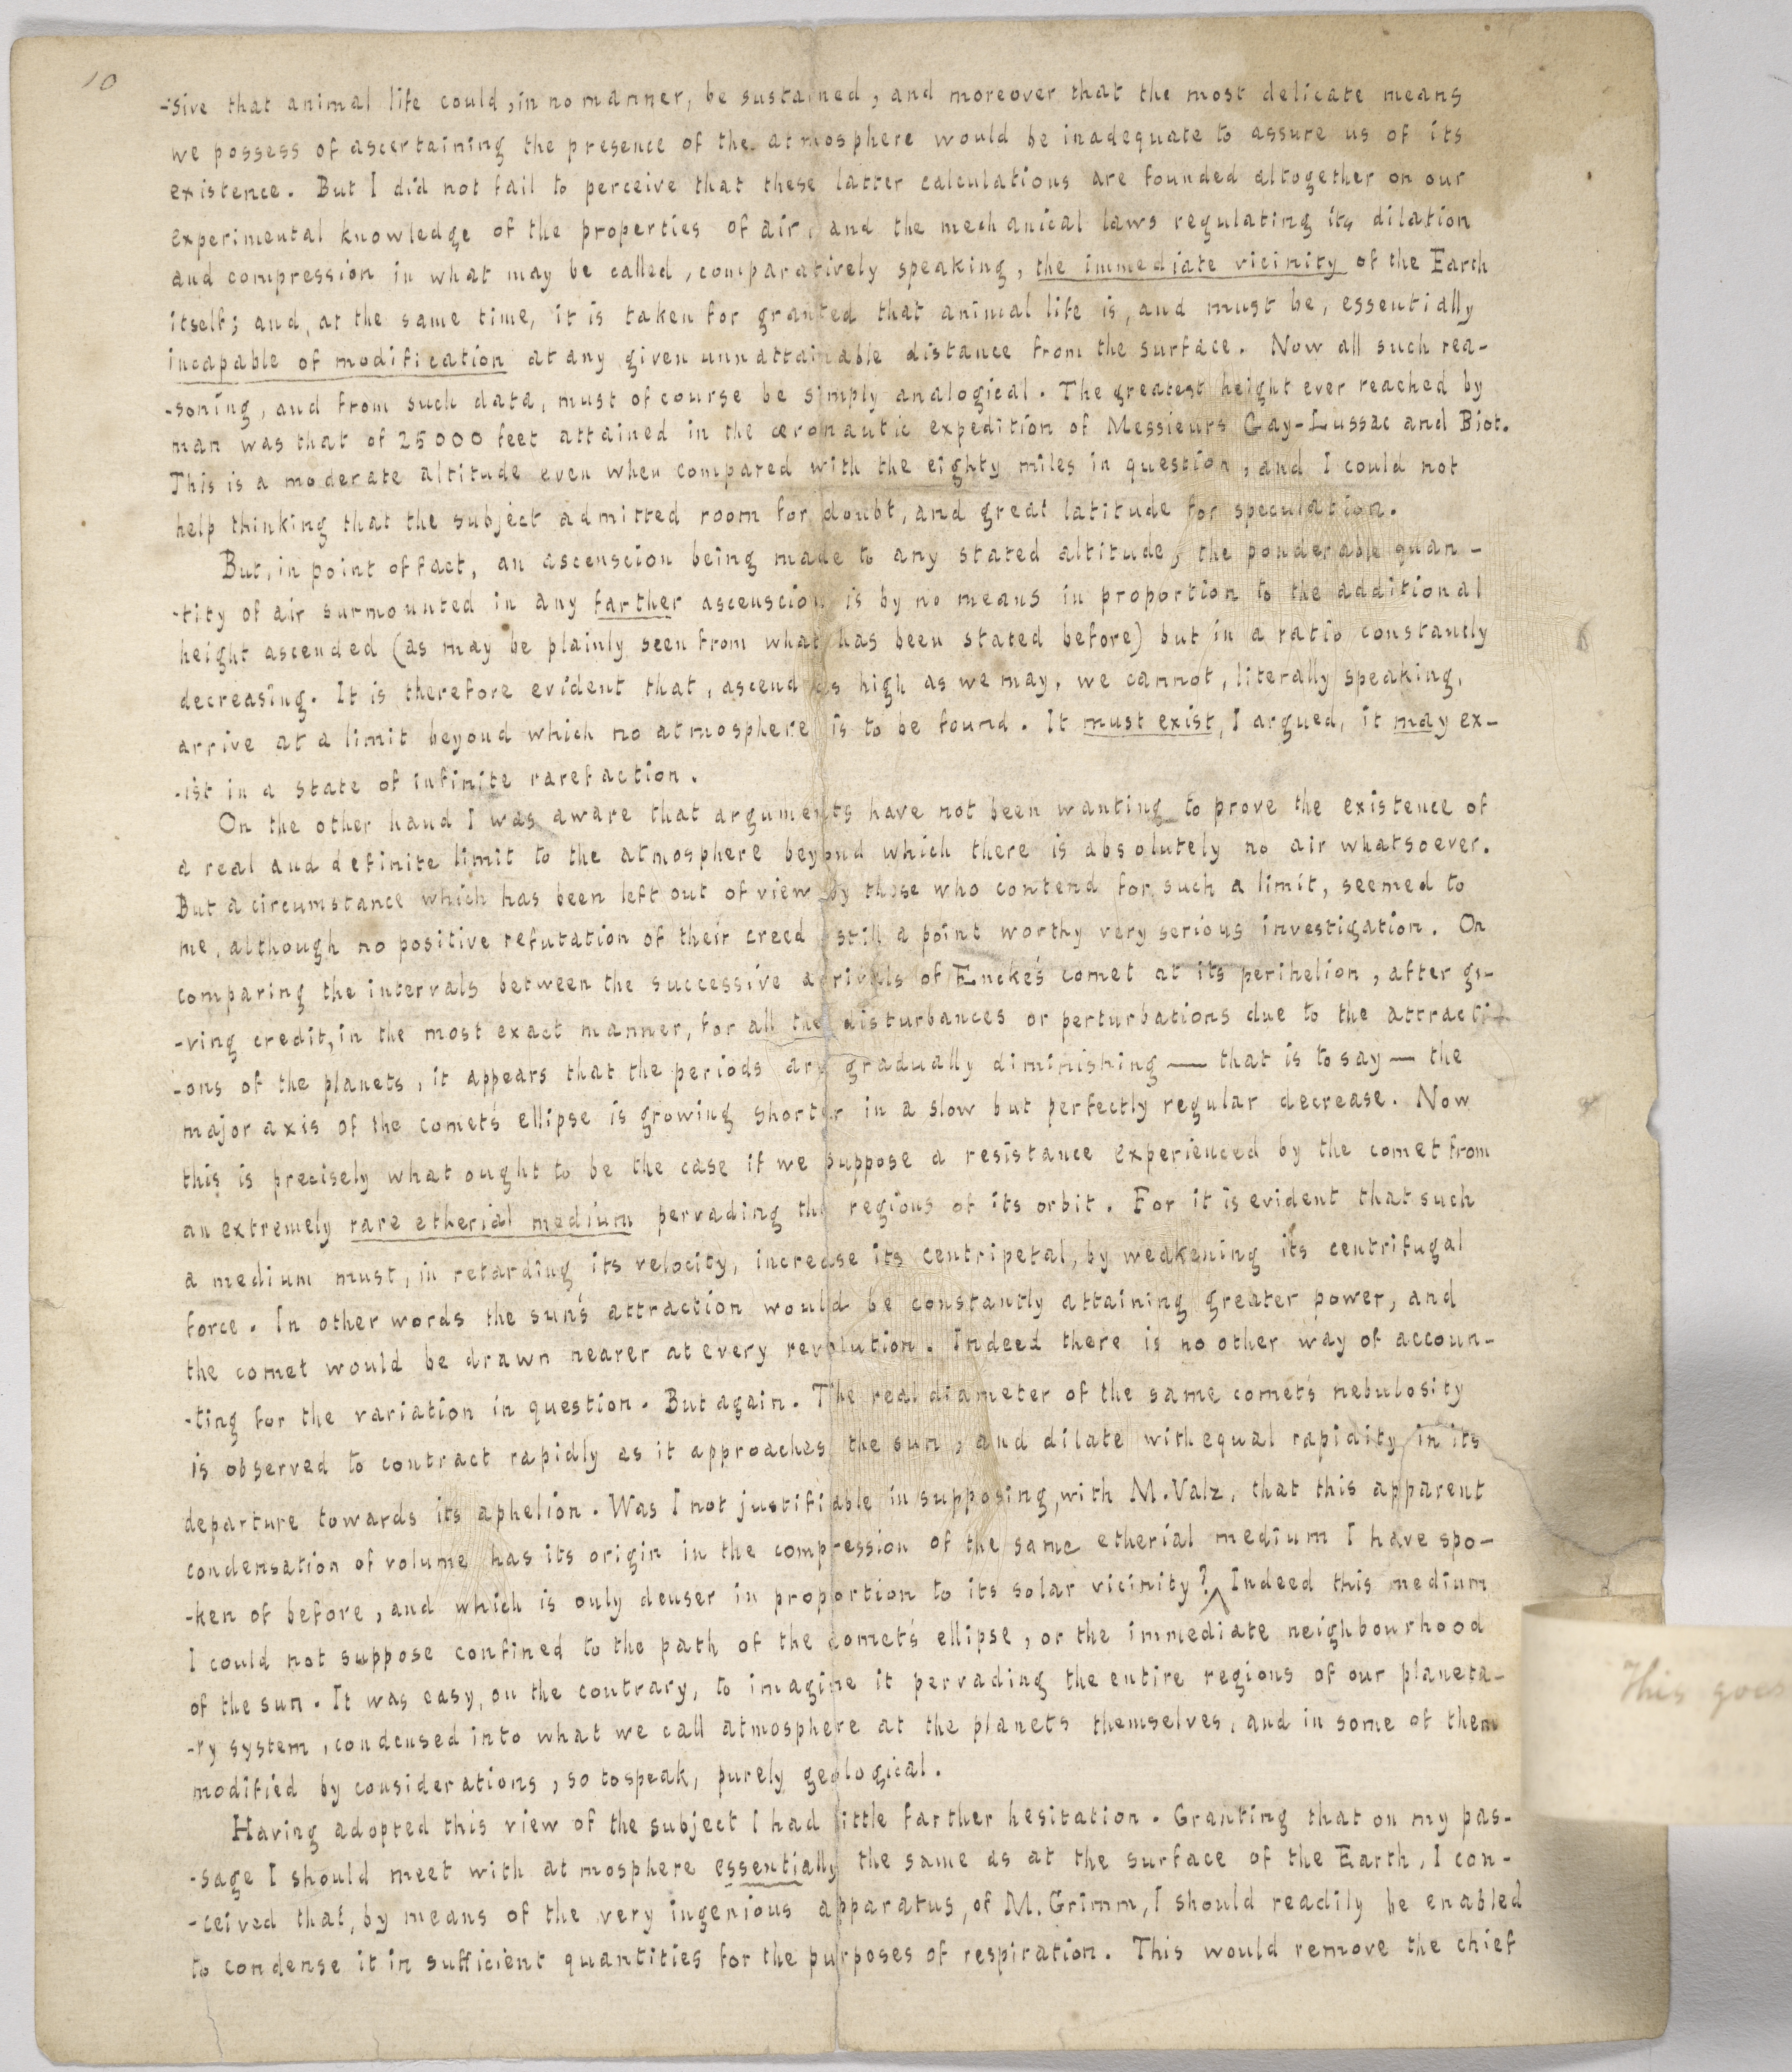 10
-sive that animal life could, in no manner, be sustained, and moreover that the most delicate means
we possess of ascertaining the presence of the atmosphere would be inadequate to assure us of its
existence. But I did not fail to perceive that these latter calculations are founded altogether on our
experimental knowledge of the properties of air, and the mechanical laws regulating its dilation
and compression in what may be called, comparatively speaking, the immediate vicinity of the Earth
itself; and, at the same time, it is taken for granted that animal life is, and must be, essentially
incapable of modification at any given unnattainable distance from the surface. Now all such rea-
-soning, and from such data, must of course be simply analogical. The greatest height ever reached by
man was that of 25000 feet attained in the æronautic expedition of Messieurs Gay-Lussac and Biot.
This is a moderate altitude even when compared with the eighty miles in question, and I could not
help thinking that the subject admitted room for doubt, and great latitude for speculation.
But, in point of fact, an ascenscion being made to any stated altitude, the ponderable quan-
-tity of air surmounted in any farther ascenscion is by no means in proportion to the additional
height ascended (as may be plainly seen from what has been stated before) but in a ratio constantly
decreasing. It is therefore evident that, ascend as high as we may, we cannot, literally speaking,
arrive at a limit beyond which no atmosphere is to be found. It must exist, I argued, it may ex-
-ist in a state of infinite rarefaction.
On the other hand I was aware that arguments have not been wanting to prove the existence of
a real and definite limit to the atmosphere beyond which there is absolutely no air whatsoever.
But a circumstance which has been left out of view by those who contend for such a limit, seemed to
me, although no positive refutation of their creed, still a point worthy very serious investigation. On
comparing the intervals between the successive arrivals of Encke's comet at its perihelion, after gi-
-ving credit, in the most exact manner, for all the disturbances or perturbations due to the attracti-
-ons of the planets, it appears that the periods are gradually diminishing — that is to say — the
major axis of the comet's ellipse is growing shorter in a slow but perfectly regular decrease. Now
this is precisely what ought to be the case if we suppose a resistance experienced by the comet from
an extremely rare etherial medium pervading the regions of its orbit. For it is evident that such
a medium must, in retarding its velocity, increase its centripetal, by weakening its centrifugal
force. In other words the sun's attraction would be constantly attaining greater power, and
the comet would be drawn nearer at every revolution. Indeed there is no other way of accoun-
-ting for the variation in question. But again. The real diameter of the same comet's nebulosity
is observed to contract rapidly as it approaches the sun, and dilate with equal rapidity in its
departure towards its aphelion. Was I not justifiable in supposing, with M. Valz, that this apparent
condensation of volume has its origin in the compression of the same etherial medium I have spo-
-ken of before, and which is only denser in proportion to its solar vicinity? Indeed this medium
I could not suppose confined to the path of the comet's ellipse, or the immediate neighbourhood
of the sun. It was easy, on the contrary, to imagine it pervading the entire regions of our planeta-
-ry system, condensed into what we call atmosphere at the planets themselves, and in some of them
modified by considerations, so to speak, purely geological.
Having adopted this view of the subject I had little farther hesitation. Granting that on my pas-
-sage I should meet with atmosphere essentially the same as at the surface of the Earth, I con-
-ceived that, by means of the very ingenious apparatus, of M. Grimm, I should readily be enabled
to condense it in sufficient quantities for the purposes of respiration. This would remove the chief
This goes